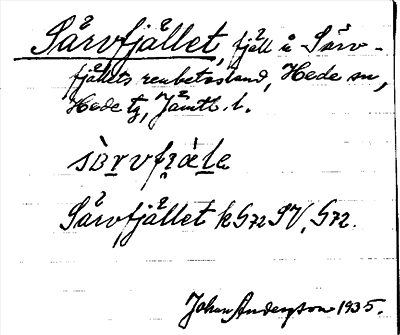 Särvfjället, fjäll å Särv-
fjällets renbetesland, Hede sn,
Hede tg, Jämtl. l.
särvfjäle
Särvfjället k G72 SV, G72.
Johan Anderson 1935.